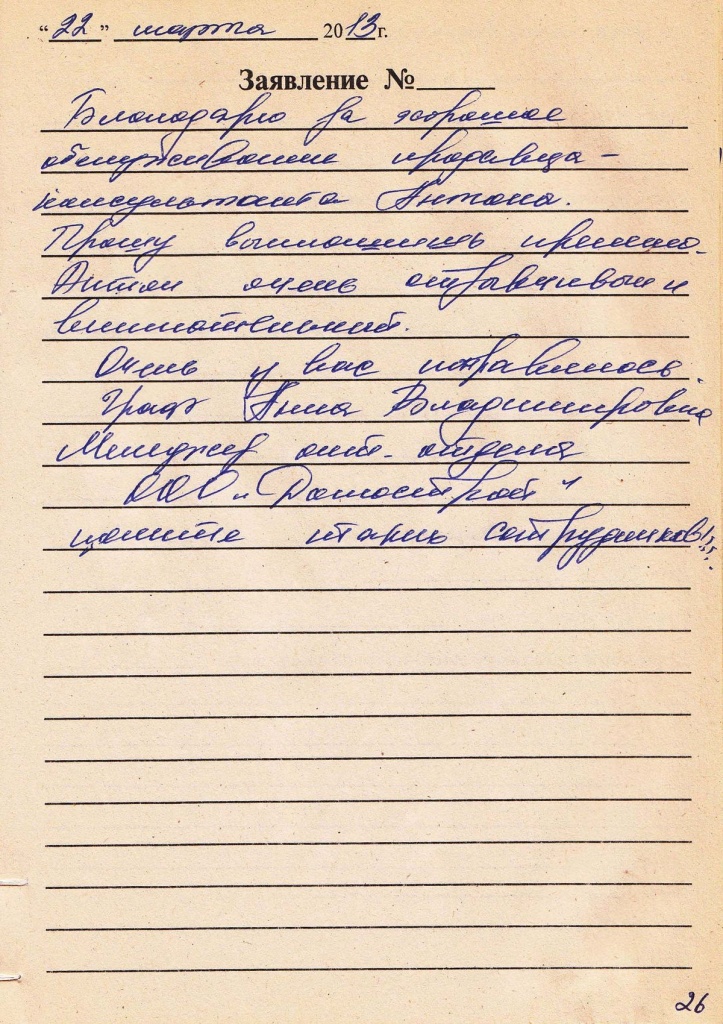 "22" марта 2013 г.
Заявление №
Благодарю за хорошее
обслуживание продавца-
консультанта Антона.
Прошу выплатить премию.
Антон очень отзывчивый и
внимательный.
Очень у вас понравилось.
Граф Анна Владимировна
Менеджер опт. отдела
ООО "Домострой"
цените таких сотрудников!!!
26